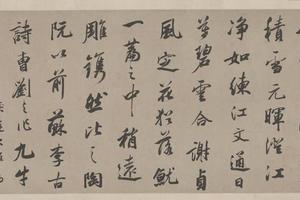 積雪元暉澄江
淨如練江文通日
暮碧雲合謝貞
風定花猶落就
一篇之中稍遠
雕鐫然比之陶
阮以前蘇李古
詩曹劉之作九牛